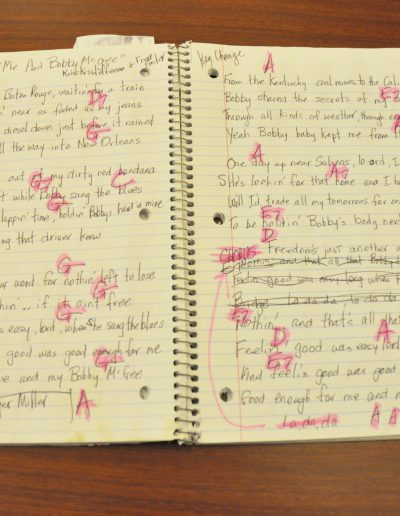 "Me And Bobby McGee"
Kris Kristofferson & Fred Foster
Baton Rouge, waiting for a train
D7
near as faded as my jeans
diesel down just before it rained
G
all the way into New Orleans
G7 C
out my dirty red bandana
while Bobby sang the blues
G
slappin' time, holdin' Bobby's hand in mine
that driver knew
G
word for nothin' left to lose
G
if it aint free
easy, lord, when she sang the blues
good was good enough for me
G
and my Bobby McGee
Miller A
Key Change
A
From the Kentucky coal mines to the
E7
Bobby shared the secrets of my
Through all kinds of weather, through
Yeah Bobby baby kept me from
A
One day up near Salinas, lord, I
A7
She's lookin' for that home and I
Well I'd trade all my tomorrows for
E7
To be holdin' Bobby's body next
D
chorus Freedom's just another
and that all that Bobby
Feelin good was easy
Bridge La da da
E7
Nothin', and that's all that
D A
Feelin' good was easy lord
E7
And feelin good was good
Good enough for me and
La, da, da A A